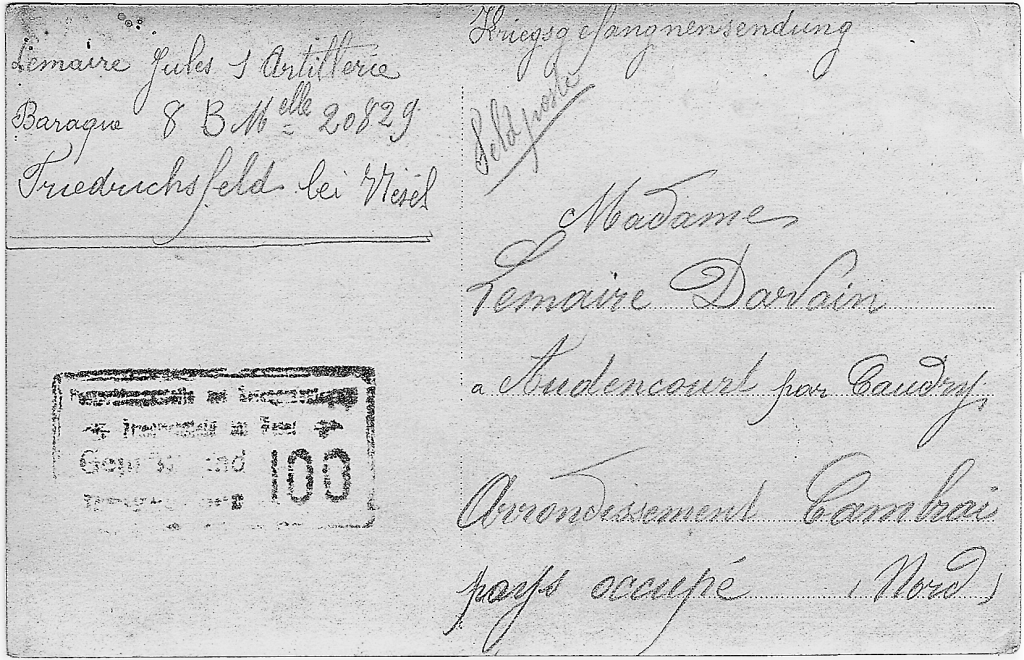 Lemaire Jules 1 Artillerie
Baraque 8 B Melle 20829
Friedrichsfeld bei Wesel
Kriegsgefangnensendung
Feldposte
Madame
Lemaire Darvain
a Audencourt par Caudry
Arrondissement Cambrai
pays occupé (Nord)
100